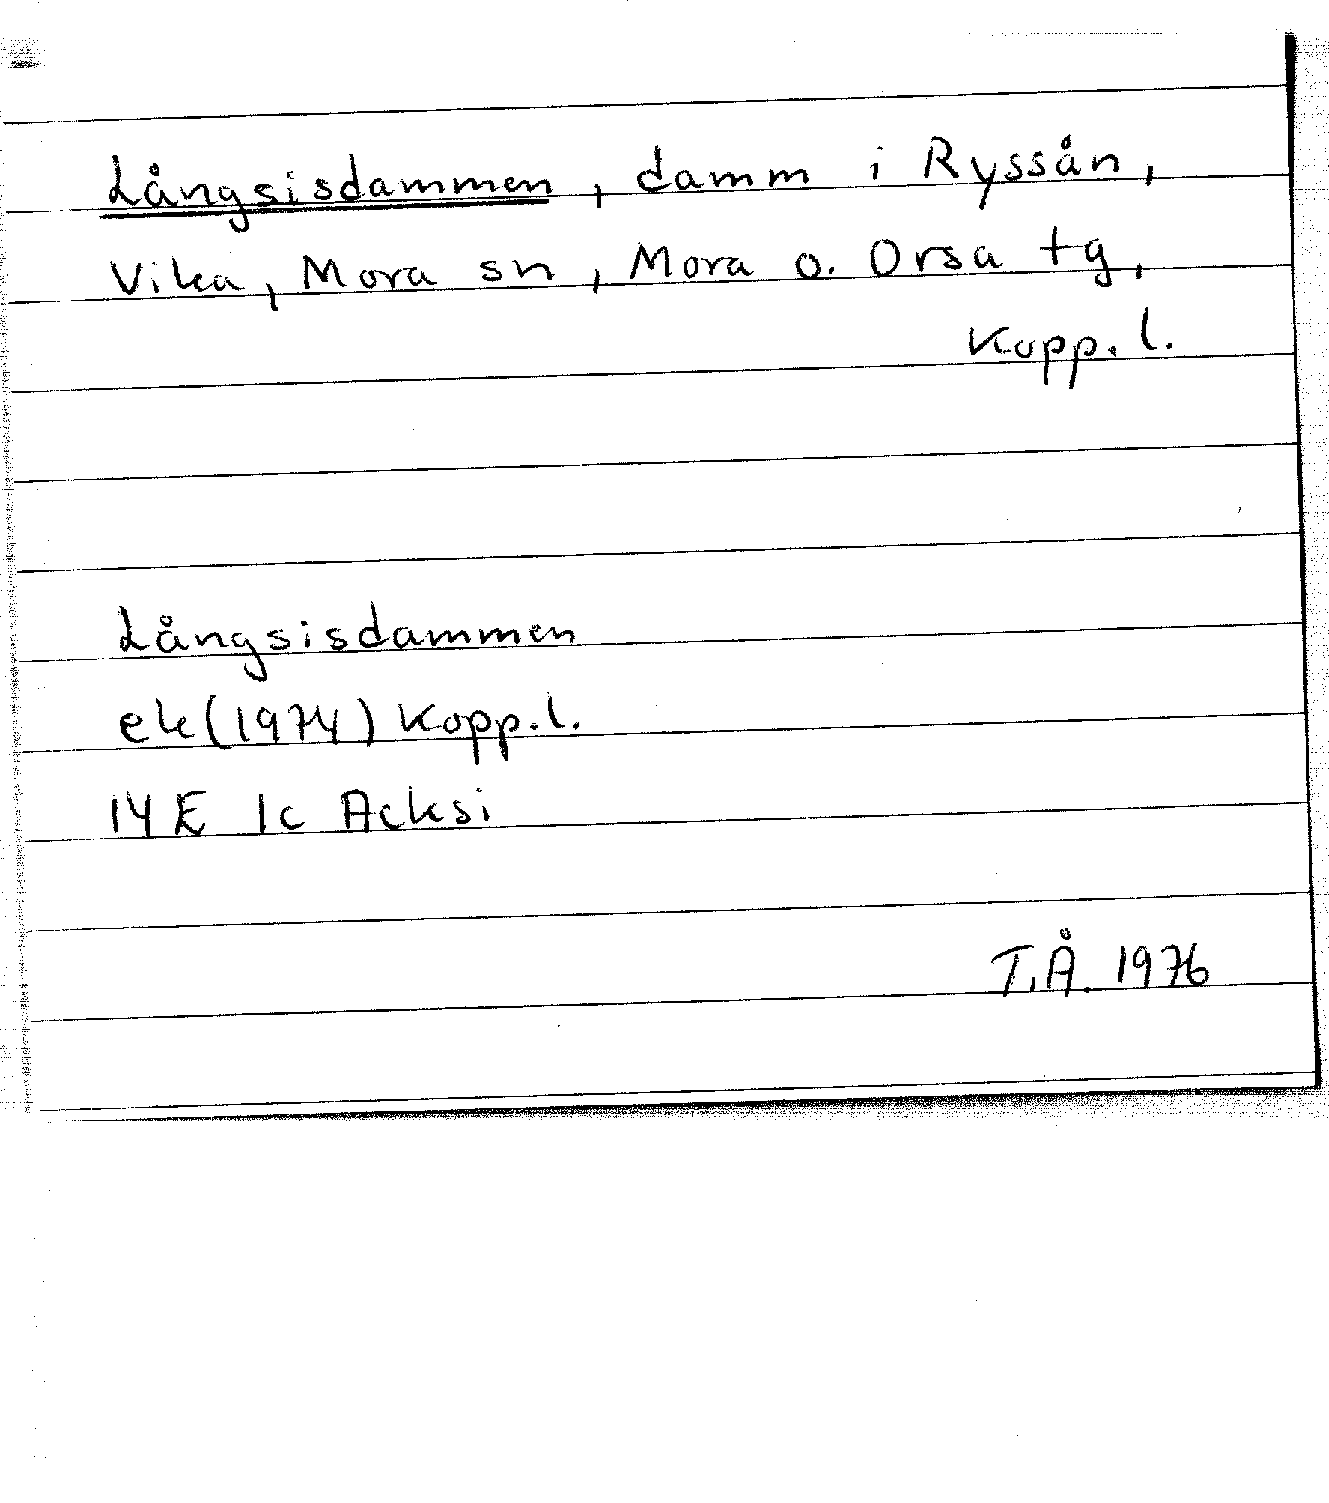 Långsisdammen, damm i Ryssån,
Vika, Mora sn, Mora o. Orsa tg,
Kopp. l.
Långsisdammen
ek (1974) Kopp. l.
14E 1c Acksi
T.Å. 1976